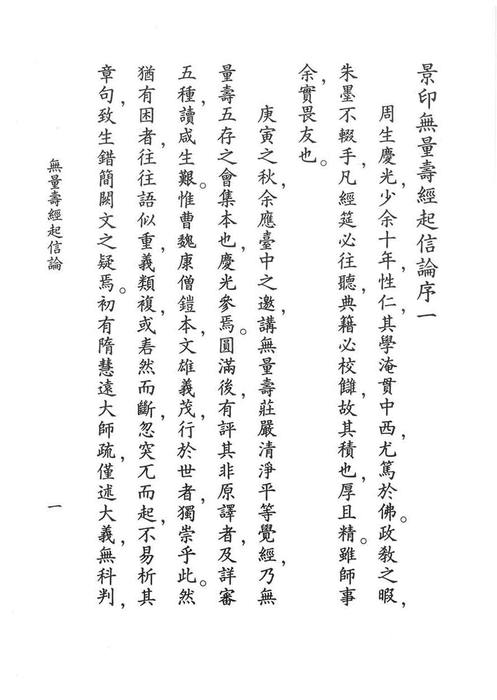 景印無量壽經起信論序一
周生慶光，少余十年，性仁，其學淹貫中西，尤篤於佛。政教之暇，
朱墨不輟手，凡經筵必往聽，典籍必校讎，故其積也，厚且精。雖師事
余，實畏友也。
庚寅之秋，余應臺中之邀，講無量壽莊嚴清淨平等覺經，乃無
量壽五存之會集本也，慶光參焉。圓滿後，有評其非原譯者，及詳審
五種，讀咸生艱。惟曹魏康僧鎧本，文雄義茂，行於世者，獨崇乎此。然
猶有困者，往往語似重，義類複，或砉然而斷，忽突兀而起，不易析其
章句，致生錯簡闕文之疑焉。初有隋慧遠大師疏，僅述大義，無科判，
無量壽經起信論
一